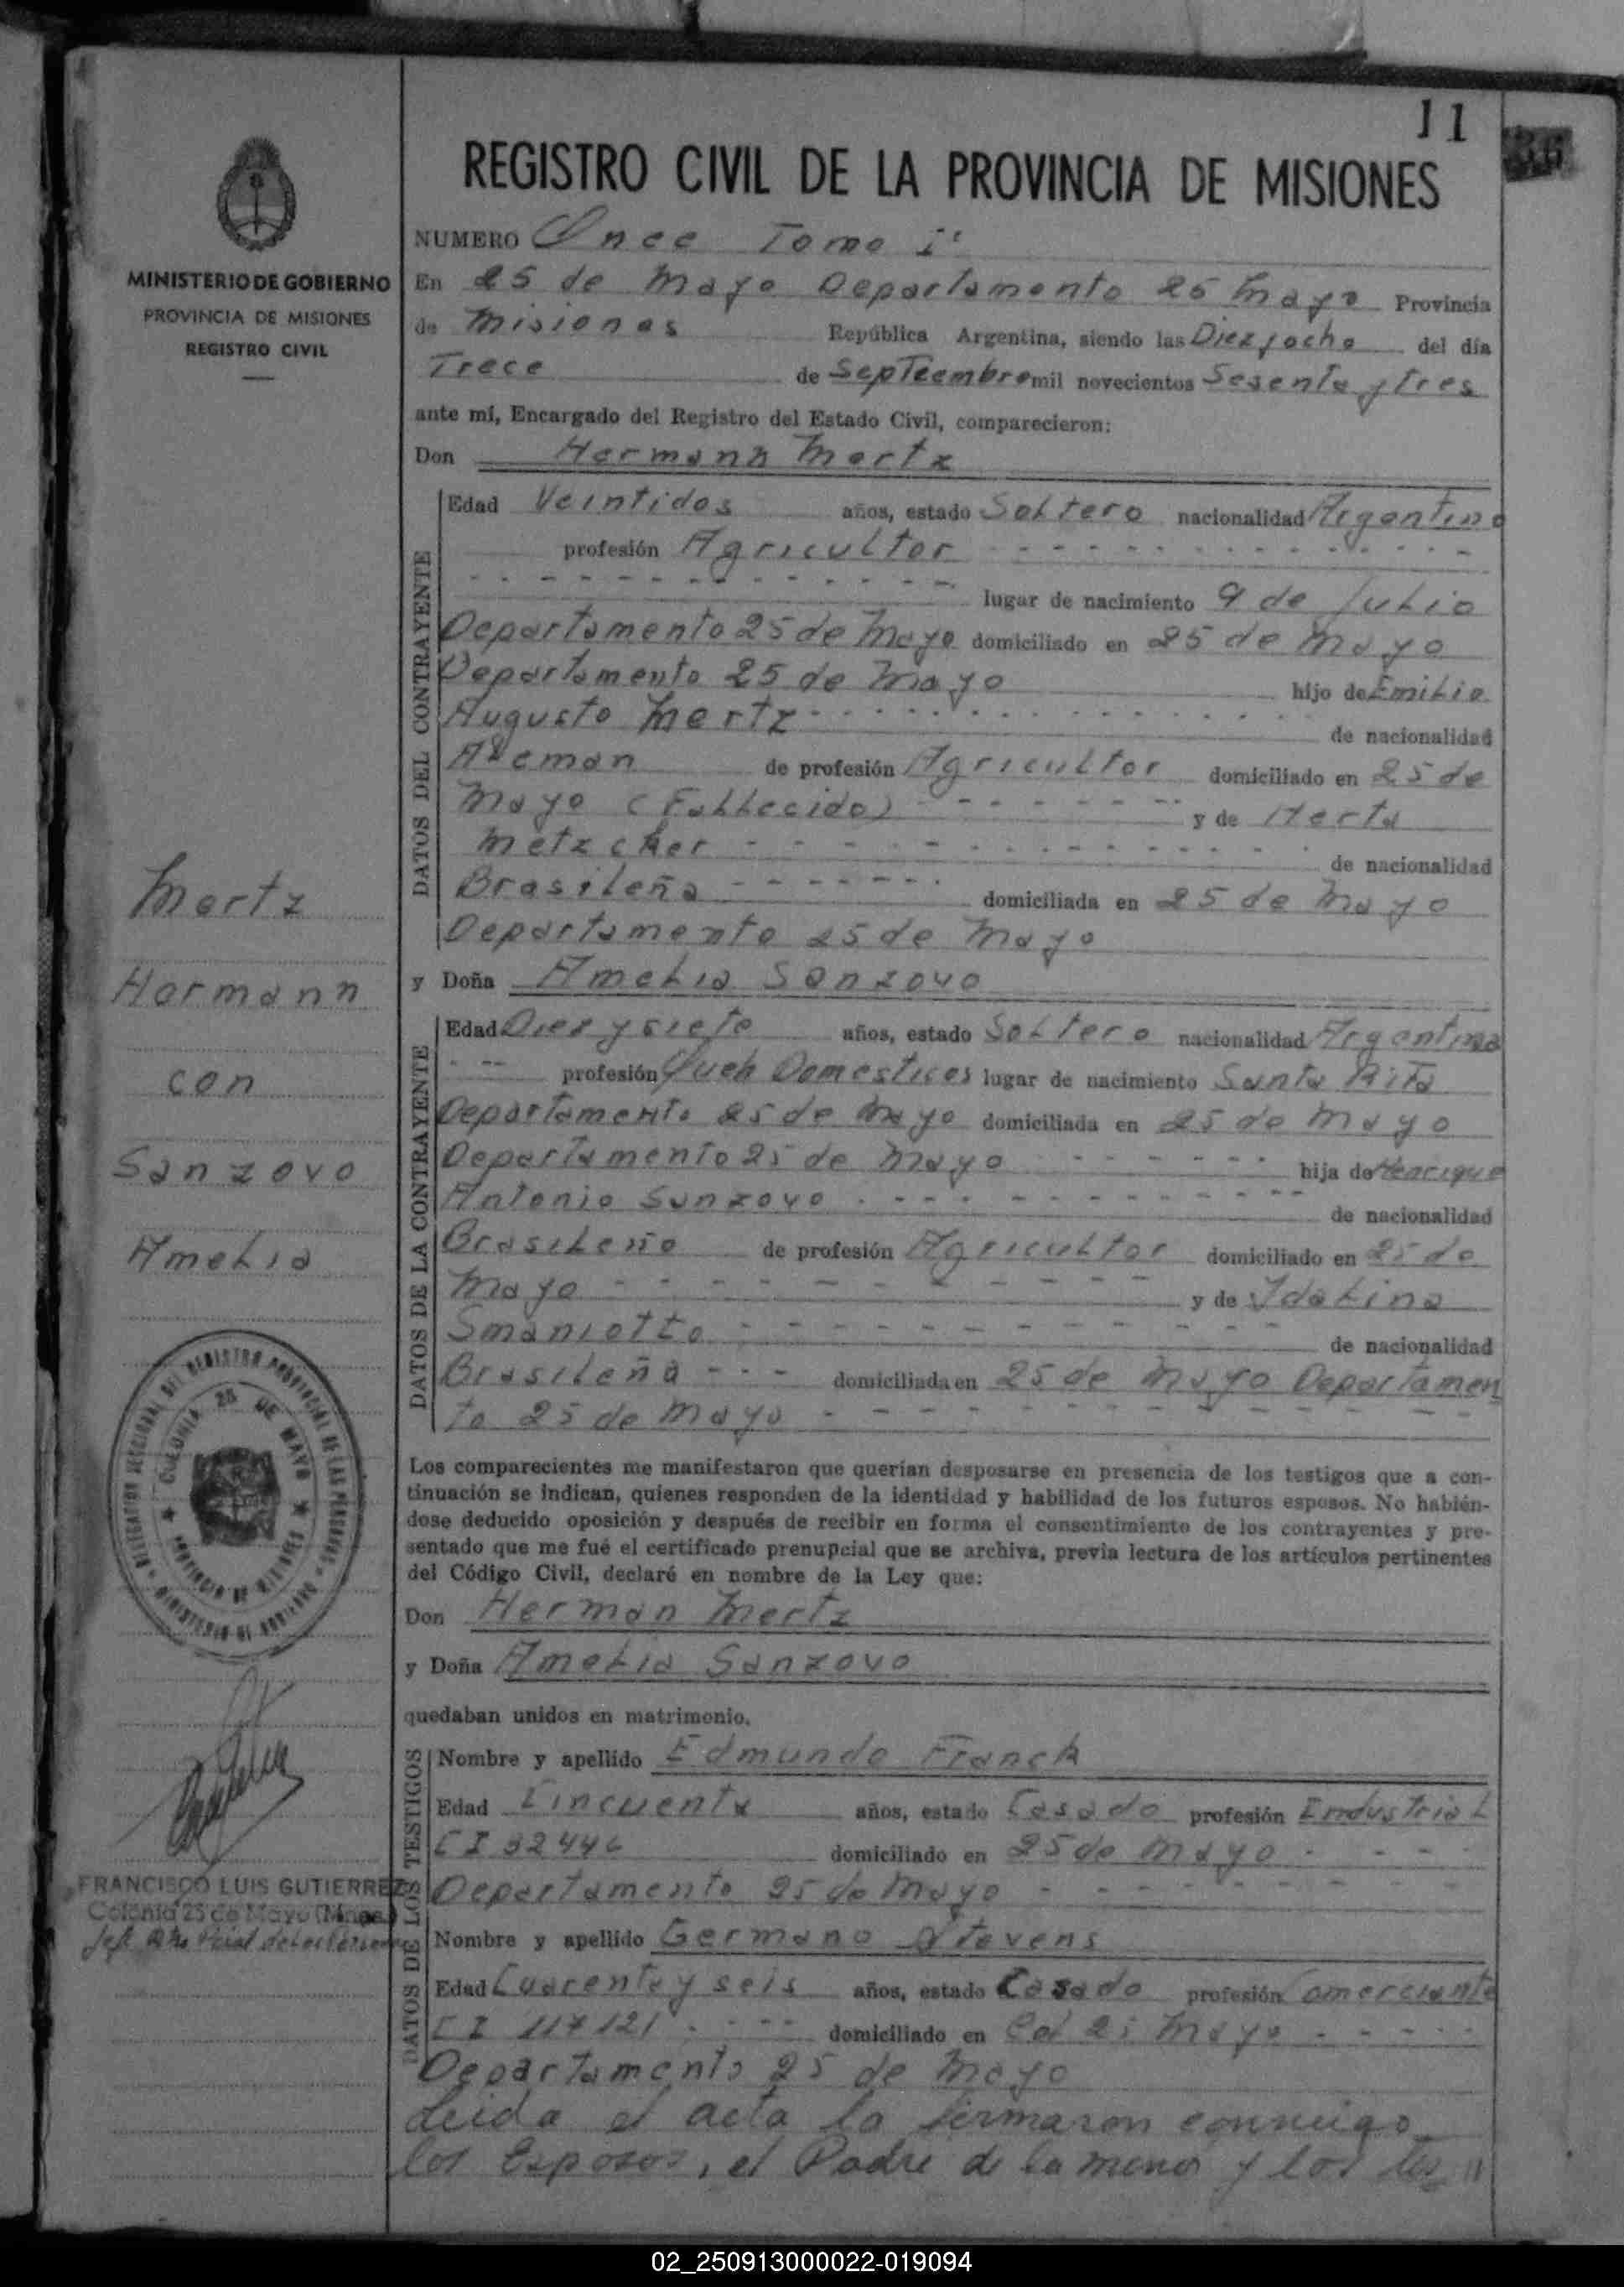 11
REGISTRO CIVIL DE LA PROVINCIA DE MISIONES
MINISTERIO DE GOBIERNO
PROVINCIA DE MISIONES
REGISTRO CIVIL
NUMERO Once Tomo I°
En 25 de Mayo Departamento 25 Mayo Provincia
de Misiones República Argentina, siendo las Diez y ocho del día
Trece de Septiembre mil novecientos Sesenta y tres
ante mí, Encargado del Registro del Estado Civil, comparecieron:
Don Hermann Mertz
DATOS DEL CONTRAYENTE
Edad Veintidos años, estado Soltero nacionalidad Argentino
profesión Agricultor
lugar de nacimiento 9 de Julio
Departamento 25 de Mayo domiciliado en 25 de Mayo
Departamento 25 de Mayo hijo de Emilio
Augusto Mertz de nacionalidad
Aleman de profesión Agricultor domiciliado en 25 de
Mayo (Fallecido) y de Herta
Metzcker de nacionalidad
Brasileña domiciliada en 25 de Mayo
Departamento 25 de Mayo
y Doña Amelia Sanzovo
DATOS DE LA CONTRAYENTE
Edad Diez y siete años, estado Soltero nacionalidad Argentina
profesión Queh Domesticos lugar de nacimiento Santa Rita
Departamento 25 de Mayo domiciliada en 25 de Mayo
Departamento 25 de Mayo hija de Henrique
Antonio Sanzovo de nacionalidad
Brasileño de profesión Agricultor domiciliado en 25 de
Mayo y de Idalina
Smaniotto de nacionalidad
Brasileña domiciliada en 25 de Mayo Departamen
to 25 de Mayo
Los comparecientes me manifestaron que querían desposarse en presencia de los testigos que a con-
tinuación se indican, quienes responden de la identidad y habilidad de los futuros esposos. No habién-
dose deducido oposición y después de recibir en forma el consentimiento de los contrayentes y pre-
sentado que me fué el certificado prenupcial que se archiva, previa lectura de los artículos pertinentes
del Código Civil, declaré en nombre de la Ley que:
Don Herman Mertz
y Doña Amelia Sanzovo
quedaban unidos en matrimonio.
DATOS DE LOS TESTIGOS
Nombre y apellido Edmundo Franck
Edad Cincuenta años, estado Casado profesión Industrial
CI 32446 domiciliado en 25 de Mayo
Departamento 25 de Mayo
Nombre y apellido Germano Stevens
Edad Cuarenta y seis años, estado Casado profesión Comerciante
CI 117121 domiciliado en Col 25 Mayo
Departamento 25 de Mayo
Leida el acta la firmaron conmigo
los Esposos, el Padre de la menor y los tes
Mertz
Hermann
con
Sanzovo
Amelia
COLONIA 25 DE MAYO
PROVINCIA DE MISIONES
FRANCISCO LUIS GUTIERREZ
Colonia 25 de Mayo (Mnes.)
02_250913000022-019094